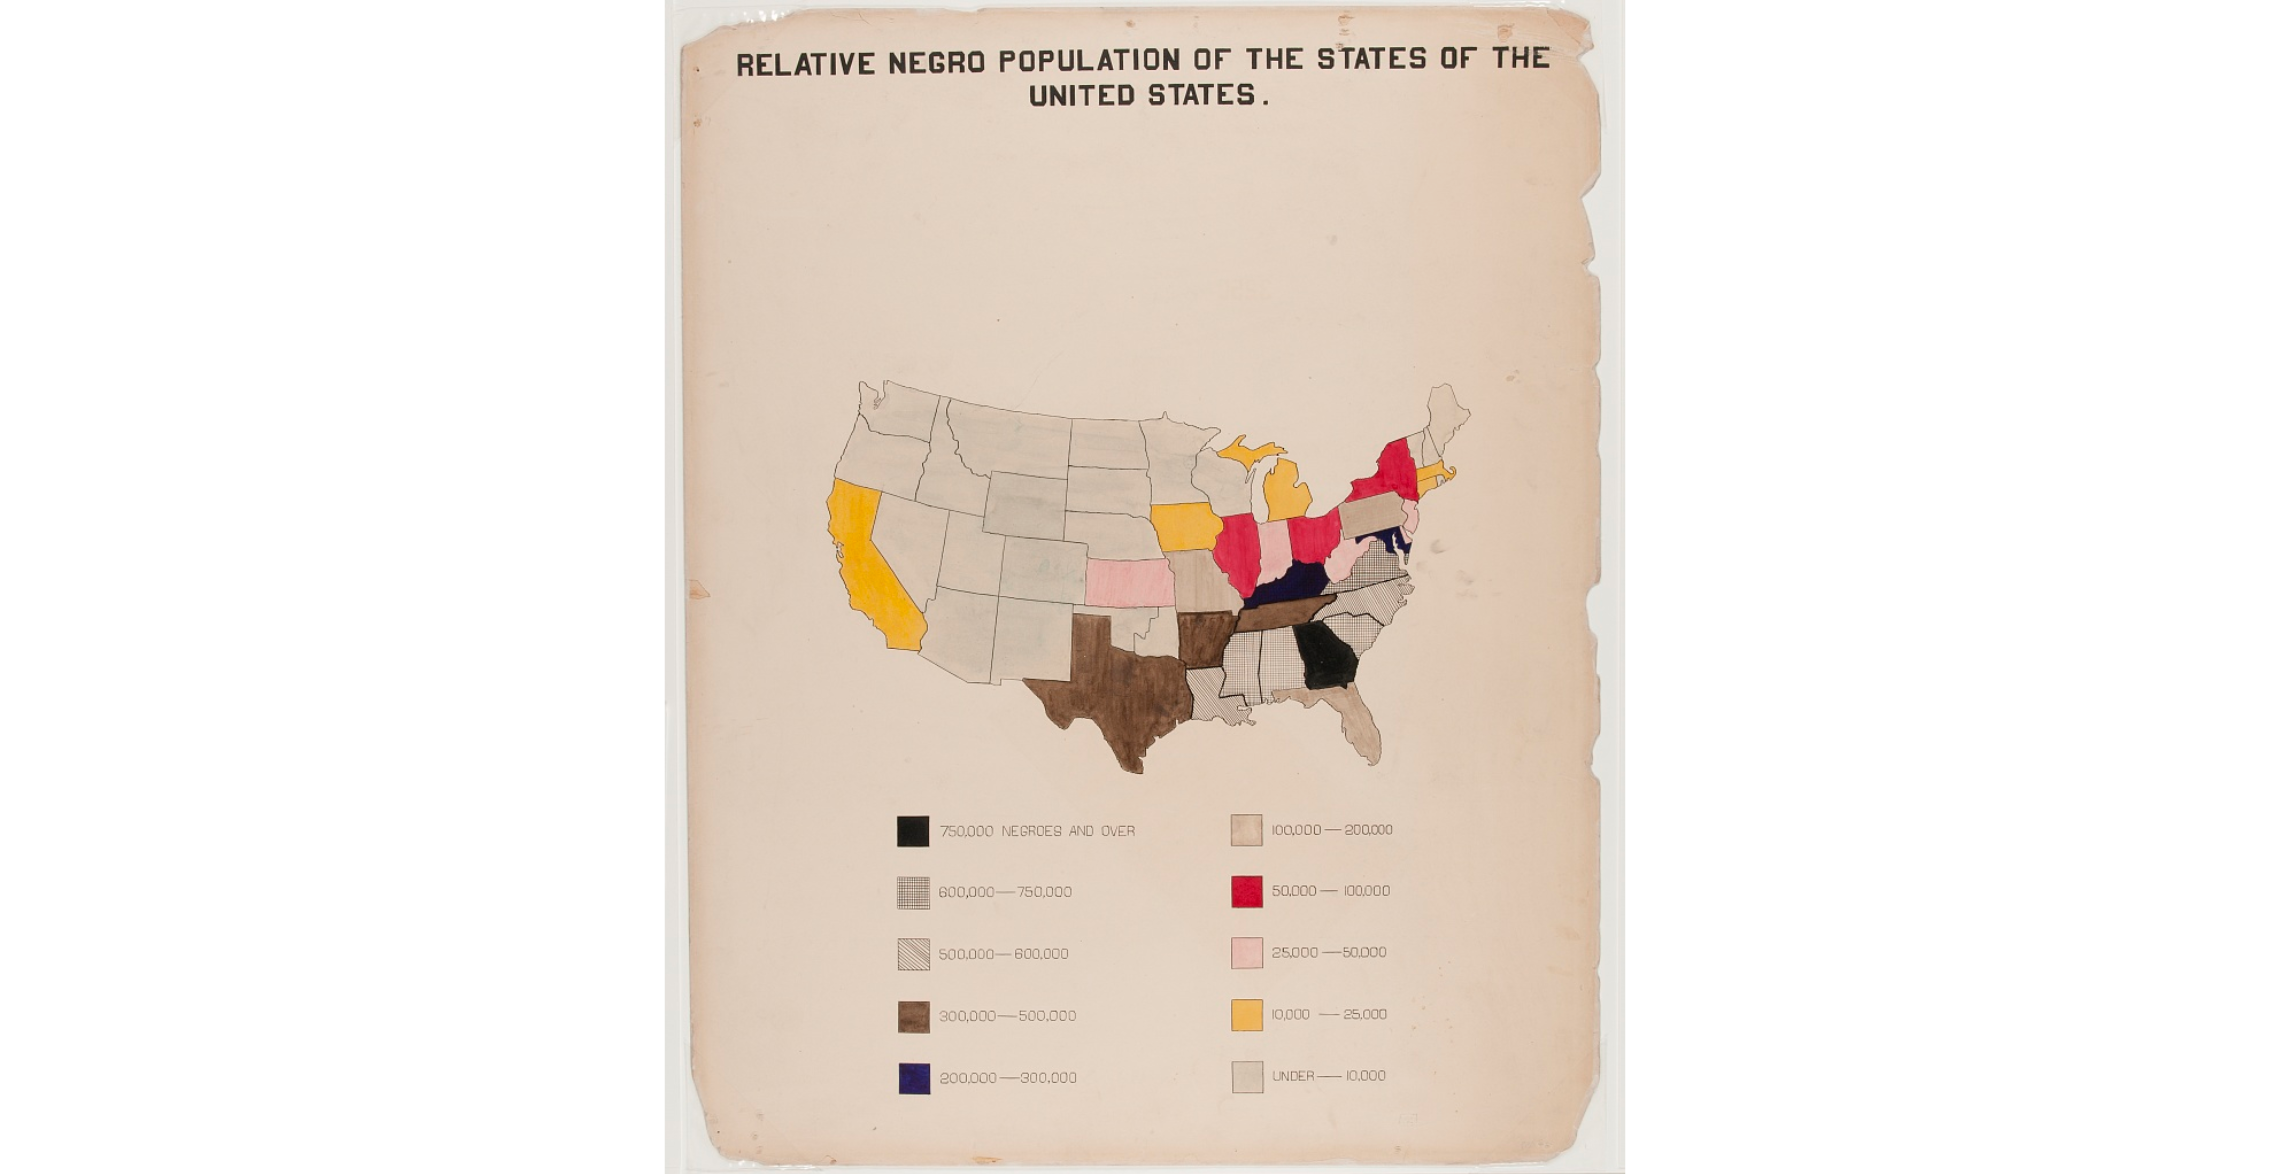 RELATIVE NEGRO POPULATION OF THE STATES OF THE
UNITED STATES.
750,000 NEGROES AND OVER
600,000—750,000
500,000—600,000
300,000—500,000
200,000—300,000
100,000—200,000
50,000—100,000
25,000—50,000
10,000—25,000
UNDER—10,000